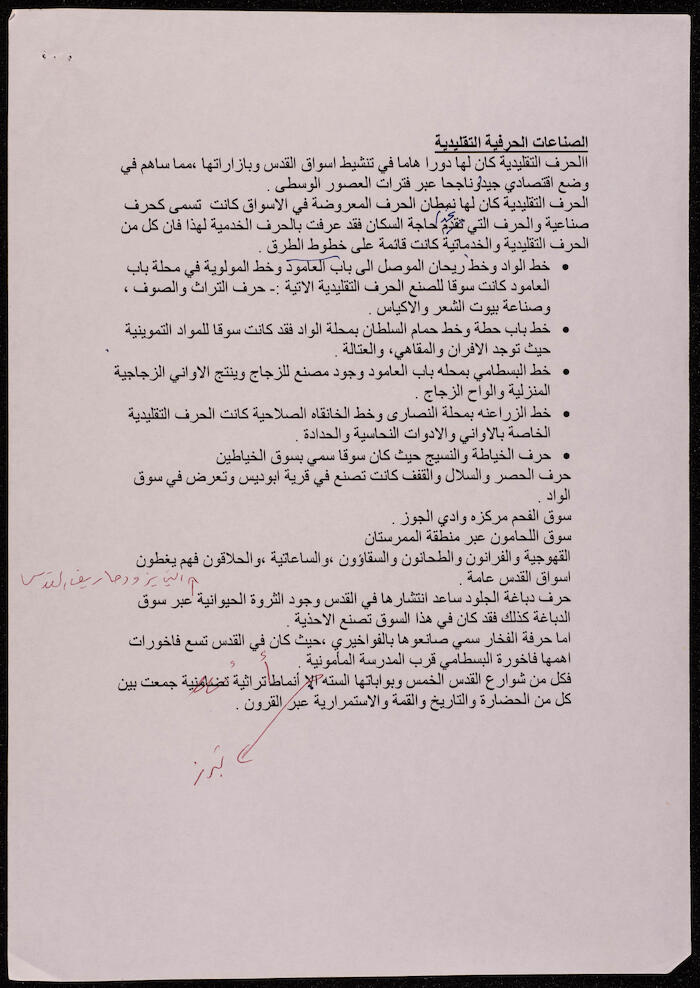 الصناعات الحرفية التقليدية
االحرف التقليدية كان لها دورا هاما في تنشيط اسواق القدس وبازاراتها ،مما ساهم في
وضع اقتصادي جيد وناجحا عبر فترات العصور الوسطى .
الحرف التقليدية كان لها نمطان الحرف المعروضة في الاسواق كانت تسمى كحرف
صناعية والحرف التي تقدم حاجة السكان فقد عرفت بالحرف الخدمية لهذا فان كل من
الحرف التقليدية والخدماتية كانت قائمة على خطوط الطرق .
• خط الواد وخط ريحان الموصل الى باب العامود وخط المولوية في محلة باب
العامود كانت سوقا للصنع الحرف التقليدية الاتية :- حرف التراث والصوف ،
وصناعة بيوت الشعر والاكياس .
• خط باب حطة وخط حمام السلطان بمحلة الواد فقد كانت سوقا للمواد التموينية
حيث توجد الافران والمقاهي، والعتالة .
• خط البسطامي بمحله باب العامود وجود مصنع للزجاج وينتج الاواني الزجاجية
المنزلية والواح الزجاج .
• خط الزراعنه بمحلة النصارى وخط الخانقاه الصلاحية كانت الحرف التقليدية
الخاصة بالاواني والادوات النحاسية والحدادة .
• حرف الخياطة والنسيج حيث كان سوقا سمي بسوق الخياطين
حرف الحصر والسلال والقفف كانت تصنع في قرية ابوديس وتعرض في سوق
الواد .
سوق الفحم مركزه وادي الجوز .
سوق اللحامون عبر منطقة الممرستان
القهوجية والفرانون والطحانون والسقاؤون ،والساعاتية ،والحلاقون فهم يغطون
اسواق القدس عامة .
حرف دباغة الجلود ساعد انتشارها في القدس وجود الثروة الحيوانية عبر سوق
الدباغة كذلك فقد كان في هذا السوق تصنع الاحذية .
اما حرفة الفخار سمي صانعوها بالفواخيري ،حيث كان في القدس تسع فاخورات
اهمها فاخورة البسطامي قرب المدرسة المأمونية .
فكل من شوارع القدس الخمس وبواباتها السته الا أنماط تراثية تضمنية جمعت بين
كل من الحضارة والتاريخ والقمة والاستمرارية عبر القرون .